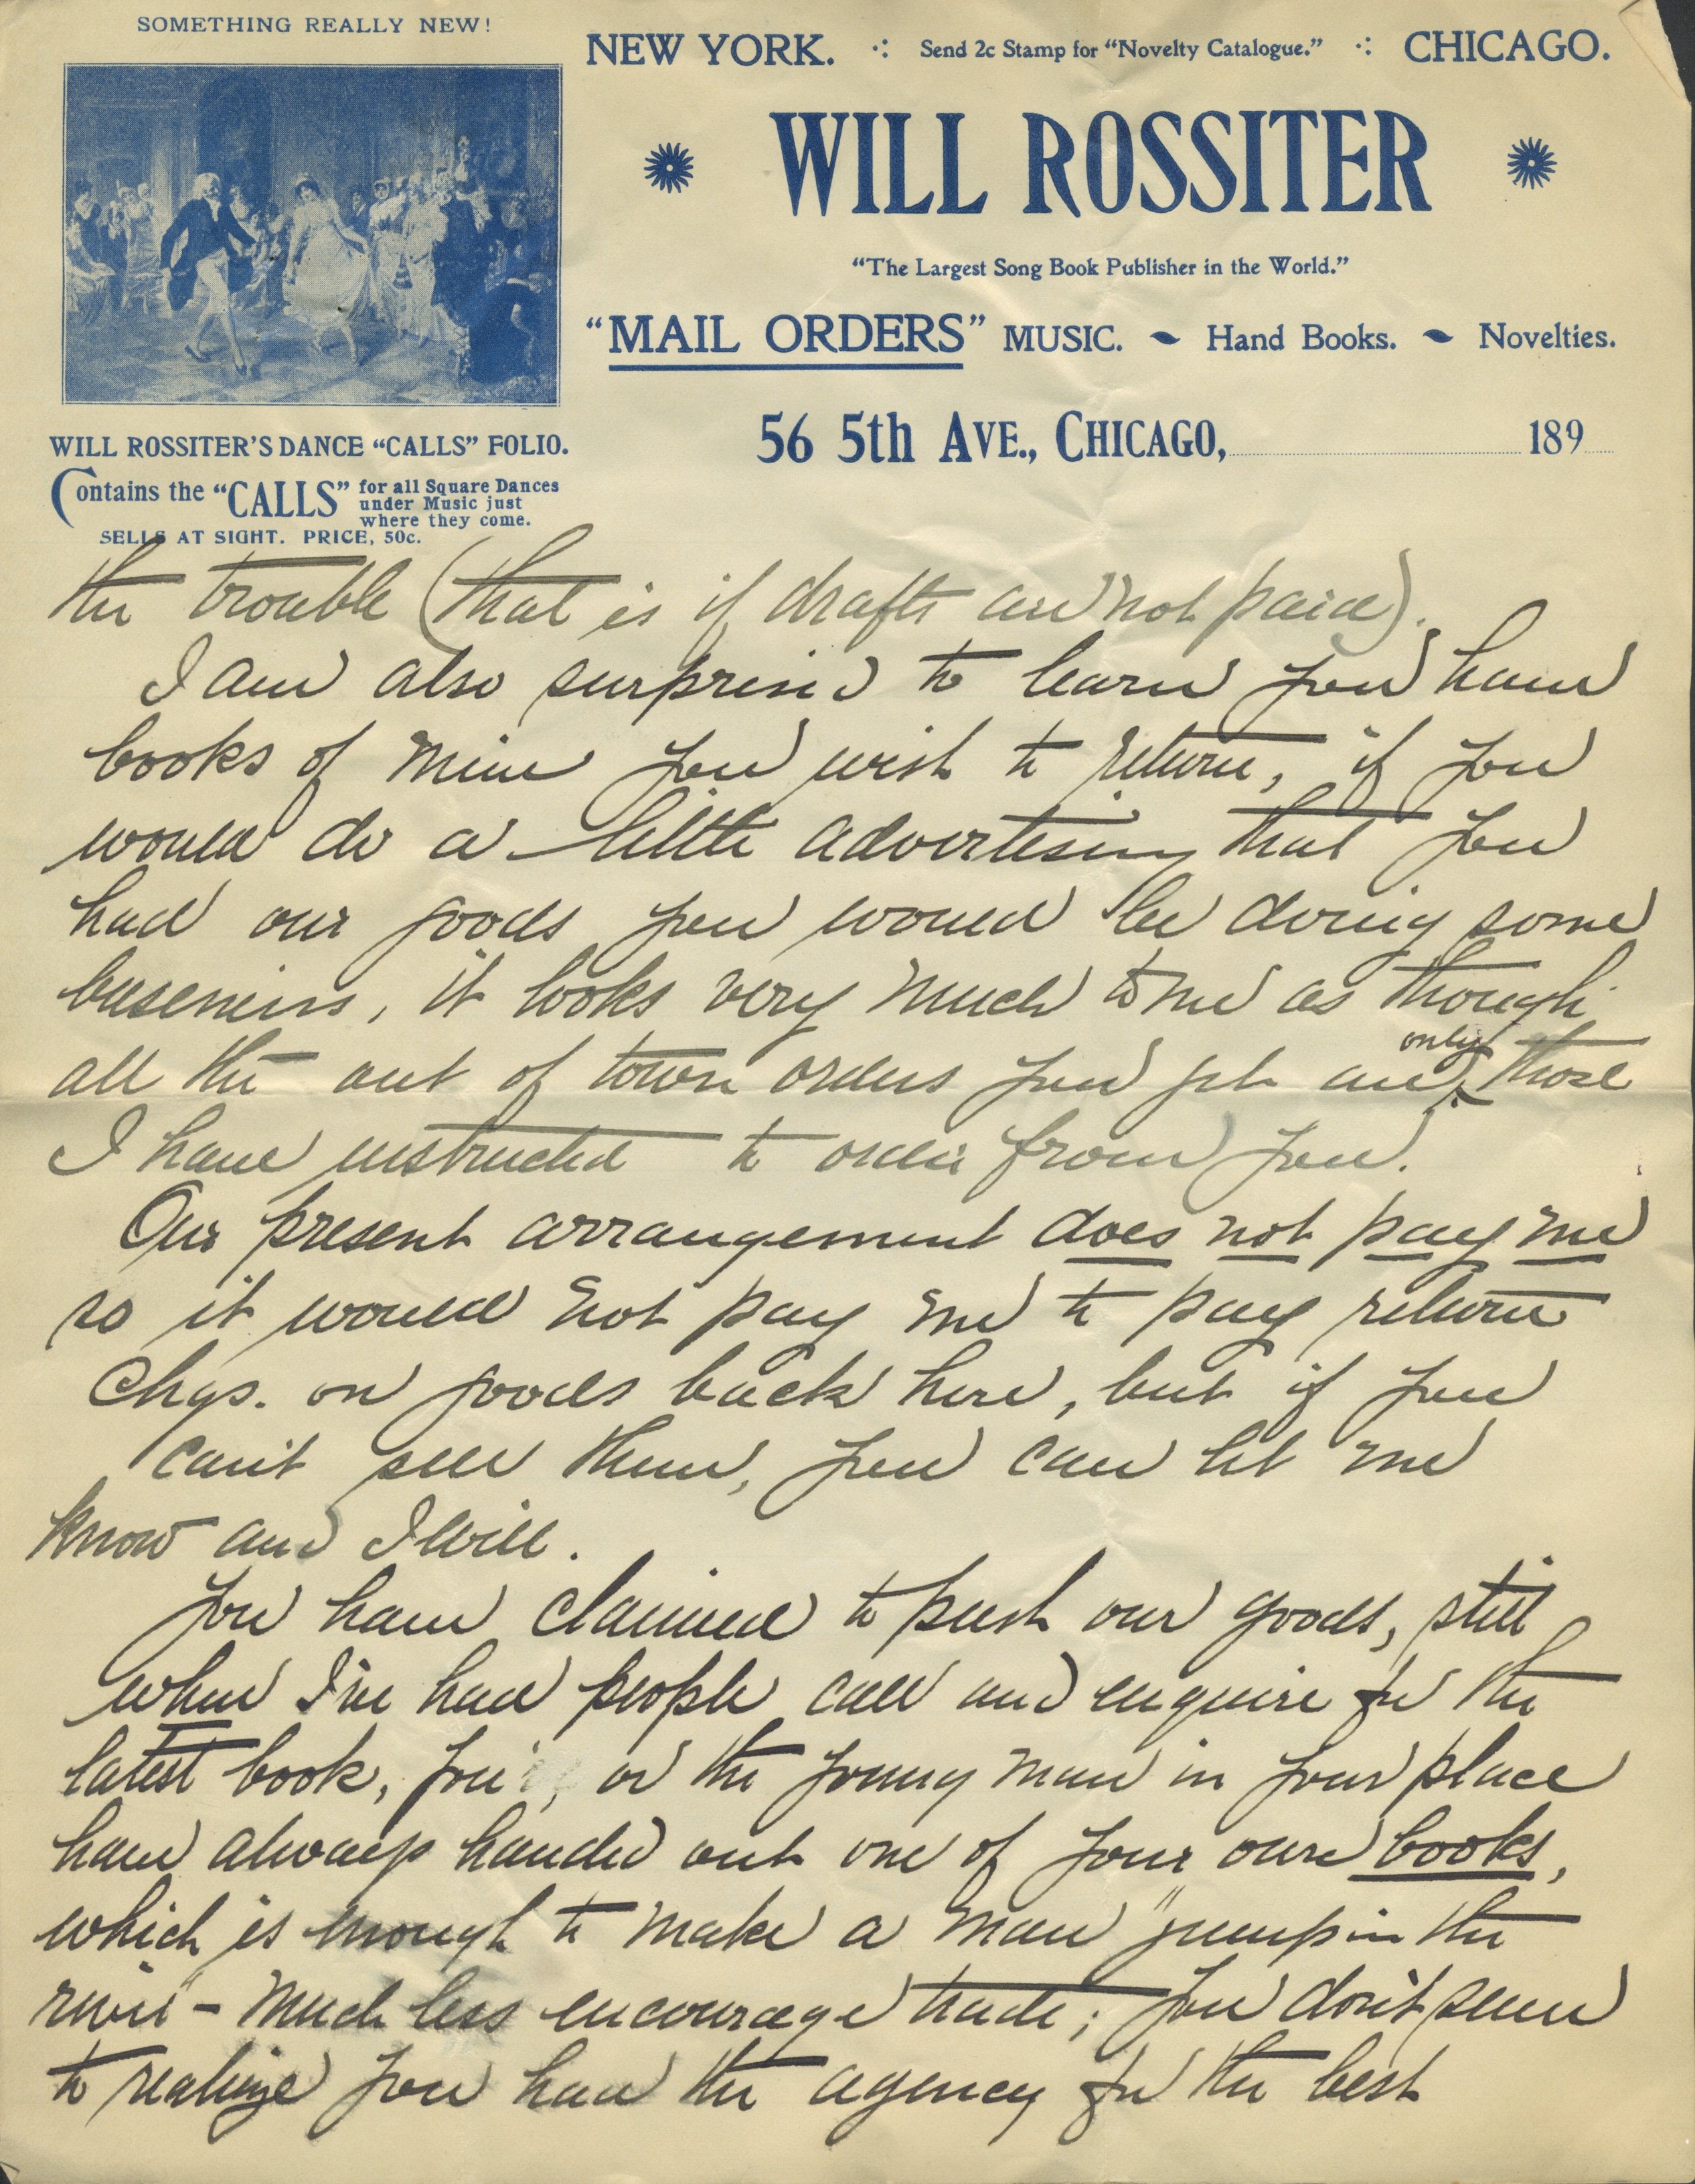 SOMETHING REALLY NEW!
NEW YORK. Send 2c Stamp for “Novelty Catalogue.” CHICAGO.
WILL ROSSITER
“The Largest Song Book Publisher in the World.”
“MAIL ORDERS” MUSIC. Hand Books. Novelties.
56 5th AVE., CHICAGO, 189
WILL ROSSITER'S DANCE “CALLS” FOLIO.
Contains the “CALLS” for all Square Dances
under Music just
where they come.
SELLS AT SIGHT. PRICE, 50c.
the trouble (that is if drafts are not paid).
I am also surprised to learn you have
books of mine you wish to return, if you
would do a little advertising that you
had our goods you would be doing some
buseniss, it looks very much to me as though
all the out of town orders you get are only those
I have instructed to order from you.
Our present arrangement does not pay me
so it would not pay me to pay return
Chgs. on goods back here, but if you
can't sell them, you can let me
know and I will.
You have claimed to push our goods, still
when I've had people call and enquire for the
latest book, you, or the young man in your place
have always handed out one of your own books,
which is enough to make a man "jump in the
river" - much less encourage trade; you don't seem
to realize you have the agency for the best